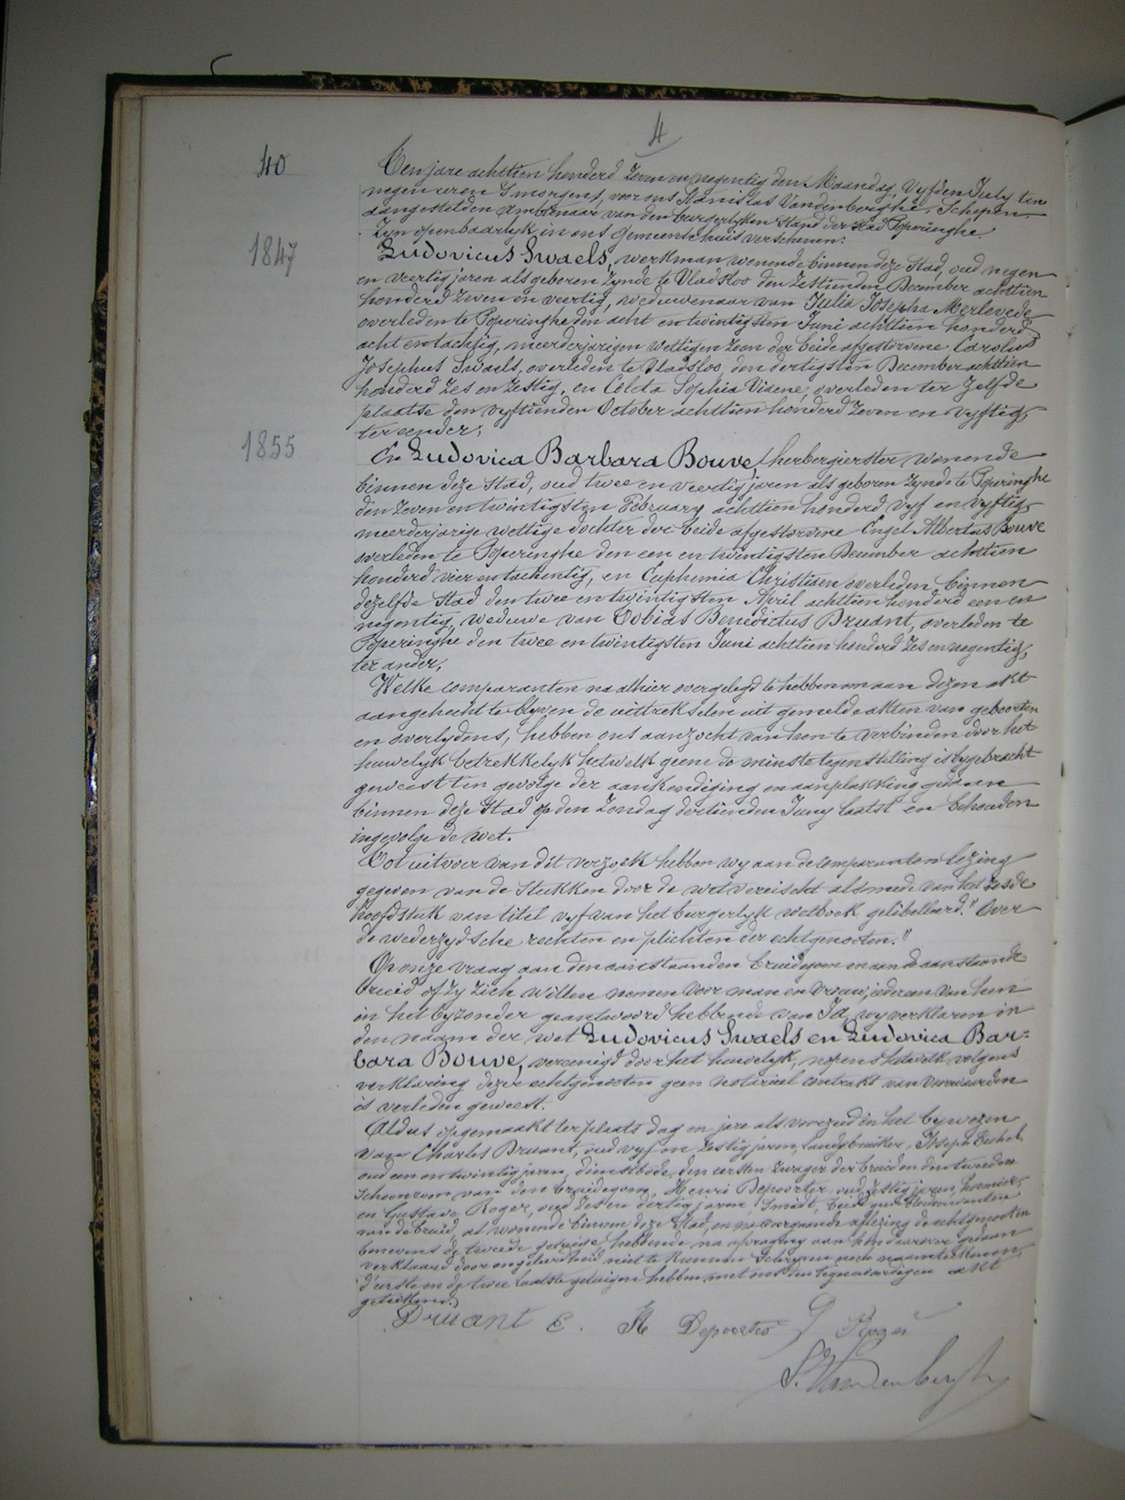 4
40
Ten jare achttien honderd zeven en negentig den Maandag, Vyfden July ten
negen uren 's morgens, voor ons Stanislas Vandenberghe, Schepen
aangestelden ambtenaar van den burgerlyken stand der stad Poperinghe
Zyn openbaarlyk in ons Gemeentehuis verschenen:
1847
Ludovicus Swaels, werkman wonende binnen deze Stad, oud negen
en veertig jaren als geboren zynde te Vladsloo den zestienden December achttien
honderd zeven en veertig, weduwenaar van Julia Josepha Merlevede
overleden te Poperinghe den acht en twintigsten Juni achttien honderd
acht en tachtig, meerderjarigen wettigen zoon der beide afgestorvene Carolus
Josephus Swaels, overleden te Vladsloo den dertigsten December achttien
honderd zes en zestig, en Coleta Sophia Viaene, overleden ter zelfde
plaatse den vyftienden October achttien honderd zeven en vyftig,
ter eender,
1855
En Ludovica Barbara Bouve, herbergierster wonende
binnen deze stad, oud twee en veertig jaren als geboren zynde te Poperinghe
den zeven en twintigsten February achttien honderd vyf en vyftig,
meerderjarige wettige dochter der beide afgestorvene Engel Albertus Bouve
overleden te Poperinghe den een en twintigsten December achttien
honderd vier en tachentig, en Euphemia Christiaen overleden binnen
dezelfde Stad den twee en twintigsten April achttien honderd een en
negentig, weduwe van Tobias Benedictus Druant, overleden te
Poperinghe den twee en twintigsten Juni achttien honderd zes en negentig,
ter ander,
Welke comparanten na alhier overgelegd te hebben om aan dezen akt
aangehecht te blyven de uittrekselen uit gemelde akten van geboorten
en overlydens, hebben ons aanzocht van hen te verbinden door het
huwelyk betrekkelyk hetwelk geene de minste tegenstelling is bygebracht
geweest ten gevolge der aankondiging en aanplakking gedaan
binnen deze Stad op den Zondag dertienden Juny laatst en behouden
ingevolge de wet.
Tot uitvoer van dit verzoek hebben wy aan de comparanten lezing
gegeven van de stukken door de wet vereischt alsmede van het zesde
hoofdstuk van titel vyf van het burgerlyk wetboek gelibelleerd "Over
de wederzydsche rechten en plichten der echtgenooten."
Op onze vraag aan den aanstaanden bruidegom en aan de aanstaande
bruid of zy zich willen nemen voor man en vrouw, iedereen van hen
in het byzonder geantwoord hebbende van Ja, wy verklaren in
den naam der wet Ludovicus Swaels en Ludovica Bar-
bara Bouve, vereenigd door het huwelyk, nopens hetwelk volgens
verklaring dezer echtgenooten geen notarieel contrakt van voorwaarden
is verleden geweest.
Aldus opgemaakt ter plaats dag en jare als voorzeid in het bywezen
van Charles Druant, oud vyf en zestig jaren, landgebruiker, Joseph
oud een en twintig jaren, dienstbode, den eersten zwager der bruid en den tweeden
Schoonzoon van den bruidegom, Henri Deportter, oud zestig jaren,
en Gustave Roger, oud zes en dertig jaren, Smedt, beide goede
van de bruid, al wonende binnen deze Stad, en na voorgaande aflezing de echtgenooten
benevens de tweede getuige hebbende na afvraging aan hun daarover gedaan
verklaard door ongeleerdheid niet te kunnen schryven noch naamteekenen,
d'eerste en de twee laatste getuigen hebben met ons den tegenwoordigen akt
geteekend.
Druant C. H Deportter G Roger
S. Vandenberghe